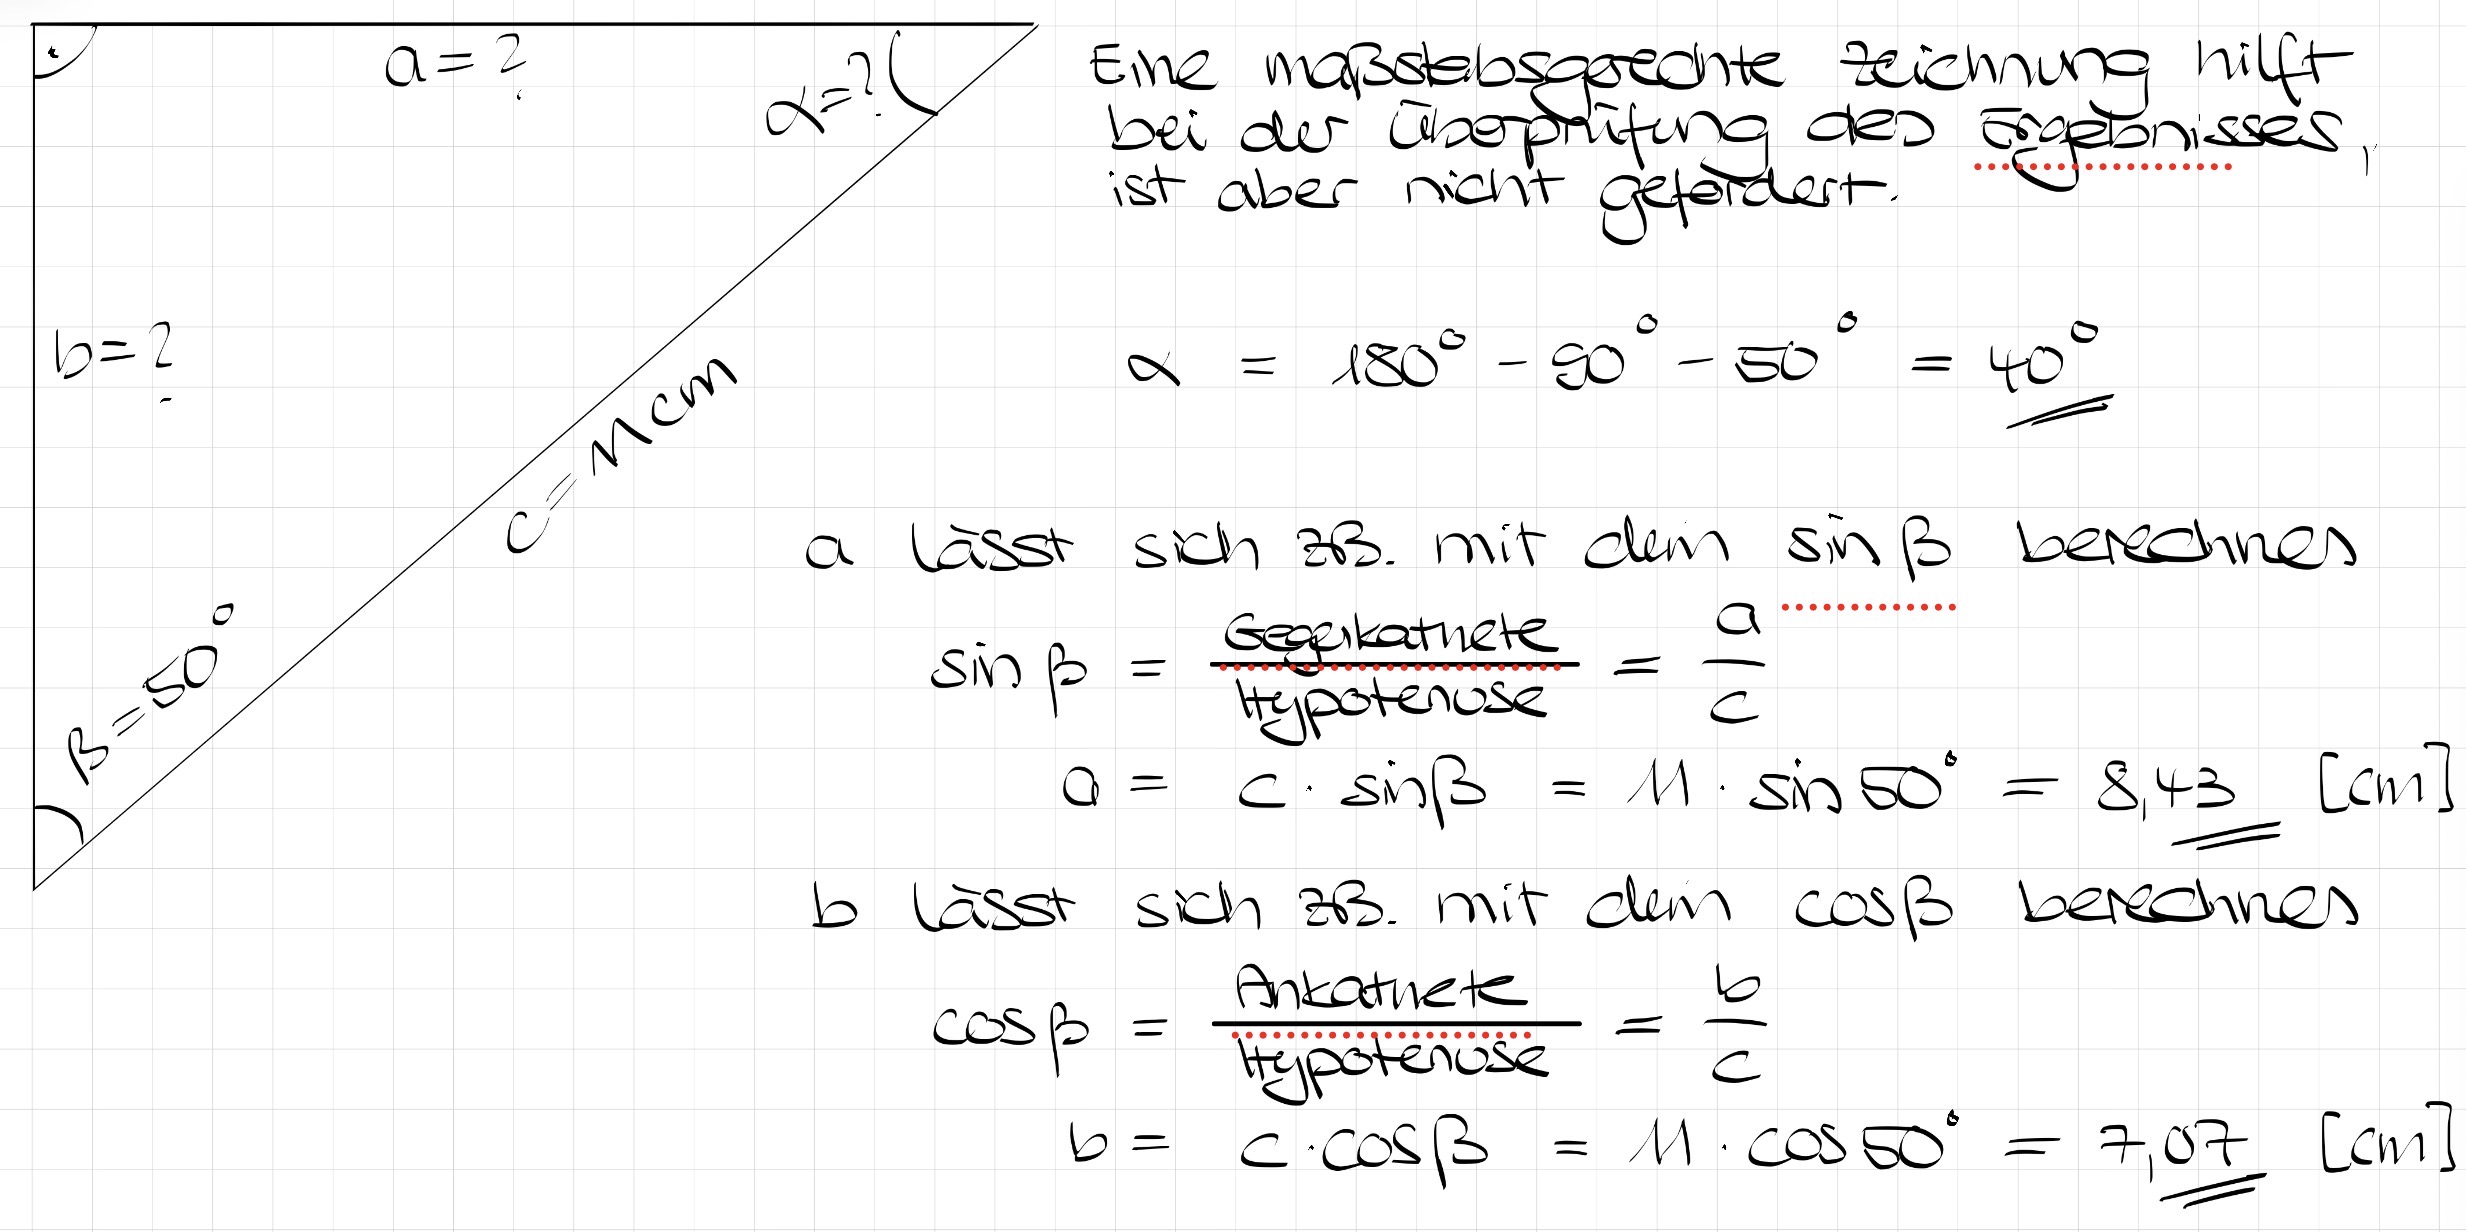 a = ?
α = ?
b = ?
c = 11 cm
β = 50°
Eine maßstabsgerechte Zeichnung hilft
bei der Überprüfung des Ergebnisses,
ist aber nicht gefordert.
α = 180° - 90° - 50° = 40°
a lässt sich zB. mit dem sin β berechnen
sin β = Gegenkathete / Hypotenuse = a / c
a = c · sin β = 11 · sin 50° = 8,43 [cm]
b lässt sich zB. mit dem cos β berechnen
cos β = Ankathete / Hypotenuse = b / c
b = c · cos β = 11 · cos 50° = 7,07 [cm]